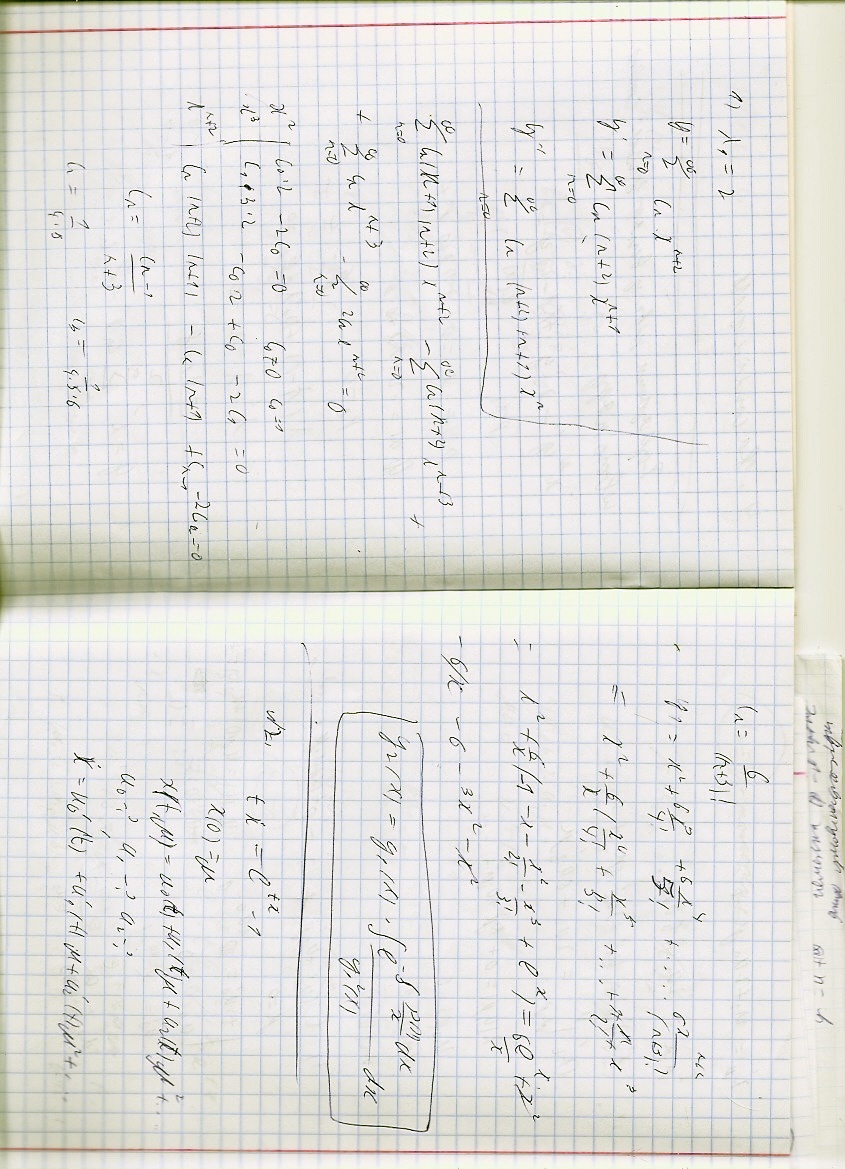 1) λ₁ = 2
y = ∑ₙ₌₀^∞ Cₙ x^{n+2}
y' = ∑ₙ₌₀^∞ Cₙ (n+2) x^{n+1}
y'' = ∑ₙ₌₀^∞ Cₙ (n+2)(n+1) xⁿ
∑ₙ₌₀^∞ Cₙ (n+1)(n+2) x^{n+2} - ∑ₙ₌₀^∞ Cₙ (n+2) x^{n+3} +
+ ∑ₙ₌₀^∞ Cₙ x^{n+3} - ∑ₙ₌₀^∞ 2Cₙ x^{n+2} = 0
x² | C₀·2 - 2C₀ = 0 C₀ ≠ 0 C₀ = 1
x³ | C₁·3·2 - C₀·2 + C₀ - 2C₁ = 0
x^{n+2} | Cₙ (n+2)(n+1) - (n+1) + Cₙ₋₁ - 2Cₙ = 0
Cₙ = Cₙ₋₁ / (n+3)
C₁ = 1/4 C₂ = 1/(4·5)
Cₙ = 6/(n+3)!
y₁ = x² + 6x³/4! + 6x⁴/5! + ..... 6x^{n+2}/(n+3)!
= x² + 6/x (x⁴/4! + x⁵/5! + ... +
= x² + 6/x (-1 - x - x²/2! - x³/3! + eˣ) = 6eˣ/x + x²
- 6/x - 6 - 3x² - x²
y₂(x) = y₁(x) · ∫ e^{-∫ p(x)/x dx} / y₁²(x) dx
№2. tx' = e^{tx} - 1
x(0) = μ
x(t,μ) = u₀(t) + u₁(t)μ + u₂(t)μ² + ...
u₀ - ? u₁ - ? u₂ - ?
x' = u₀'(t) + u₁'(t)μ + u₂'(t)μ² + ....